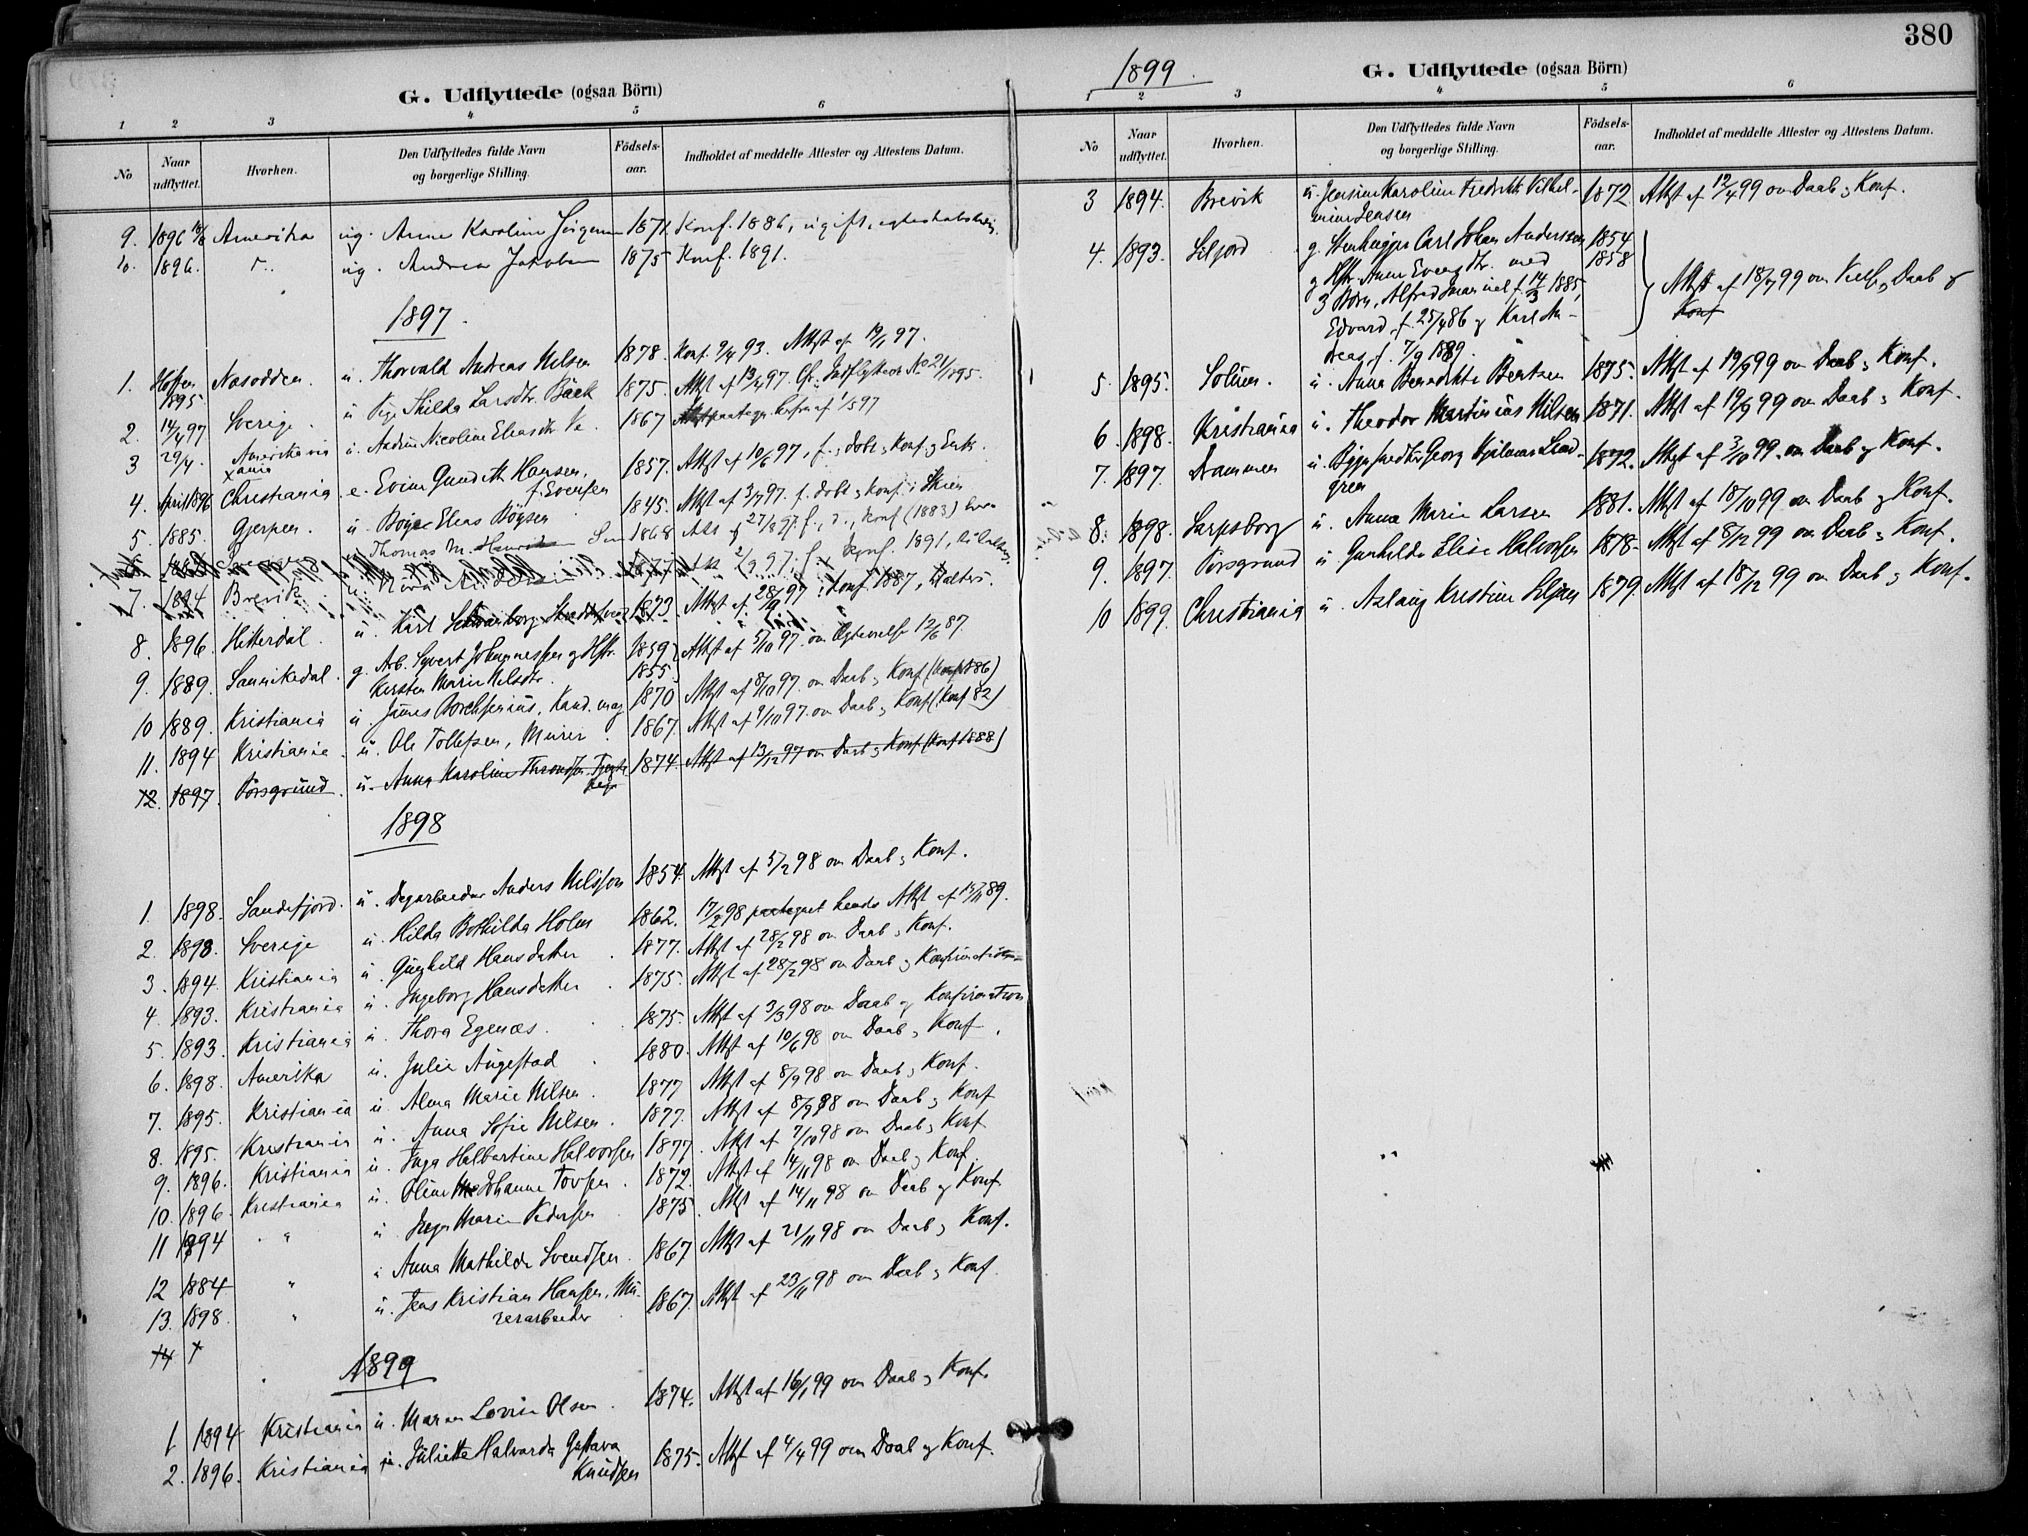 G. Udflyttede (ogsaa Börn)
1 2 3 4 5 6
No Naar udflyttet. Hvorhen. Den Udflyttedes fulde Navn og borgerlige Stilling. Födsels-aar. Indholdet af meddelte Attester og Attestens Datum.
9. 1896 Amerika ug. Anne Karoline 1871. Konf. 1886, ugift,
10. 1896. ug. Andrea Jakobsen 1875 Konf. 1891.
1897.
1. 1895 Næsodden. u. Thorvald Andreas Nilsen 1878. Konf. 9/4 93. Attest af 19/1 97.
2. 14/4 97 Sverige. u. Pige Thilda Larsdtr. Bäck 1875. Attest af 13/4 97. Cfr. Indflyttede No 21/1895.
3 29/4. Amerika via Xania u. Andrea Nicoline Eliasdtr 1867
4. April 1896 Christiania e. Gunda Hansen, f. Evensen 1857. Attest af 10/6 97, f., døbt, Konf. og Enke.
5 1885. Gjerpen. u. Elias Böysen 1845. Attest af 3/7 97. f. døbt og Konf. i Skien
Thomas M. 1868 Att af 27/8 97. f., d., Konf (1883)
7. 1894 Brevik 2/9 97. Konf. 1891,
8. 1896. Hitterdal. u. Karl 1873. Attest af 28/9 97 Konf 1887,
9. 1889. Sannikedal. g. Arb. Syvert Johannessen og Hstr. 1859 Attest af 5/10 97. om Ægtevielse 12/6 87.
Kirsten Marie Nilsdtr. 1855
10 1889. Kristiania u. James Borchsenius, Kand. mag 1870 Attest af 8/10 97. om Daab og Konf (Konf 1886)
11. 1894 Kristiania. u. Ole Tollefsen, Murer. 1867. Attest af 9/10 97. om Daab og Konf (Konf 82)
12. 1897. Porsgrund. u. Anna Karoline Throndsen. 1874. Attest af 13/12 97 om Daab og Konf (Konf 1888)
1898
1. 1898. Sandefjord. u. Dagarbeider Anders Nilsson 1854. Attest af 5/2 98 om Daab og Konf.
2. 1898. Sverige u. Hilda Bothilda Holm 1862. 17/2 98 paategnet hendes Attest af 15/11 89.
3. 1894. Kristiania u. Gunhild Hansdatter 1877. Attest af 28/2 98 om Daab og Konf.
4. 1893. Kristiania u. Ingeborg Hansdatter 1875. Attest af 28/2 98 om Daab og Konfirmation
5. 1893. Kristiania u. Thora Egenæs. 1875. Attest af 3/3 98 om Daab og Konfirmation
6. 1898. Amerika u. Julie Augestad 1880. Attest af 10/6 98 om Daab og Konf.
7. 1895. Kristiania u. Alma Marie Nilsen. 1877 Attest af 8/9 98 om Daab og Konf.
8. 1895. Kristiania u. Anna Sofie Nilsen. 1877. Attest af 8/9 98 om Daab og Konf
9. 1896. Kristiania u. Inga Halbertine Halvorsen 1877. Attest af 7/10 98 om Daab og Konf
10. 1896. Kristiania u. Oline Johanne Tovsen. 1872. Attest af 14/11 98 om Daab og Konf.
11 1894 " u. Inga Marie Pedersen 1875. Attest af 14/11 98 om Daab og Konf.
12 1884 " u. Anna Mathilde Svendsen. 1867 Attest af 21/11 98 om Daab og Konf.
13. 1898. " u. Jens Kristian Hansen, Mu-
rerarbeider 1867. Attest af 23/11 98 om Daab og Konf.
14
1899
1 1894 Kristiania u. Maren Lovise Olsen. 1874. Attest af 16/1 99 om Daab og Konf.
2. 1896. Kristiania u. Juliette Halvarda Gustava
Knudsen 1875. Attest af 4/4 99 om Daab og Konf.
380
1899.
G. Udflyttede (ogsaa Börn)
1 2 3 4 5 6
No Naar udflyttet. Hvorhen. Den Udflyttedes fulde Navn og borgerlige Stilling. Födsels-aar. Indholdet af meddelte Attester og Attestens Datum.
3 1894. Brevik u. Jensine Karoline Fredrikke Vilhel-
mine Jensen 1872 Attest af 12/4 99 om Daab og Konf.
4. 1893. Siljord g. Stenhugger Carl Johan Anderssen 1854
og Hstr. Anne Evensdtr. med 1858
3 Børn, Alfred f. 14/3 1885,
Edvard, f. 25/4 86 og Karl An-
dreas, f. 7/9 1889. Attest af 18/7 99 om Vielse, Daab og
Konf
5 1895. Solum. u. Anna Benedikte Bentsen 1875. Attest af 19/9 99 om Daab og Konf.
6. 1898. Kristiania u. Theodor Martinius Nilsen 1871. Attest af 19/9 99 om Daab og Konf.
7. 1897. Drammen u. Georg Hjalmar Lind-
gren 1872. Attest af 3/10 99. om Daab og Konf.
8. 1898. Sarpsborg u. Anna Marie Larsen 1881. Attest af 18/10 99 om Daab og Konf.
9. 1897. Porsgrund u. Gunhilda Elise Halvorsen 1878. Attest af 8/12 99 om Daab og Konf.
10 1899. Christiania u. Aslaug Kristine Siljan 1879. Attest af 18/12 99 om Daab og Konf.